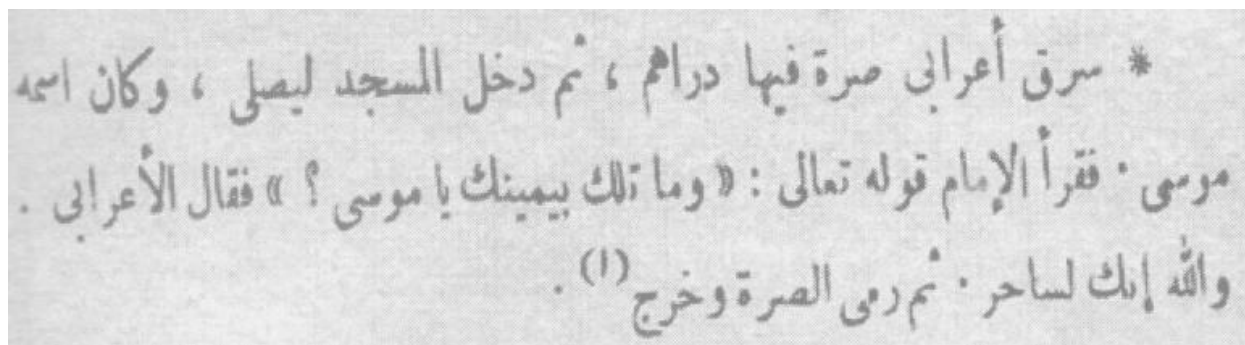 * سرق أعرابى صرة فيها دراهم ، ثم دخل المسجد ليصلى ، وكان اسمه
موسى . فقرأ الإمام قوله تعالى : « وما تلك بيمينك يا موسى ؟ » فقال الأعرابى .
والله إنك لساحر . ثم رمى الصرة وخرج (١) .